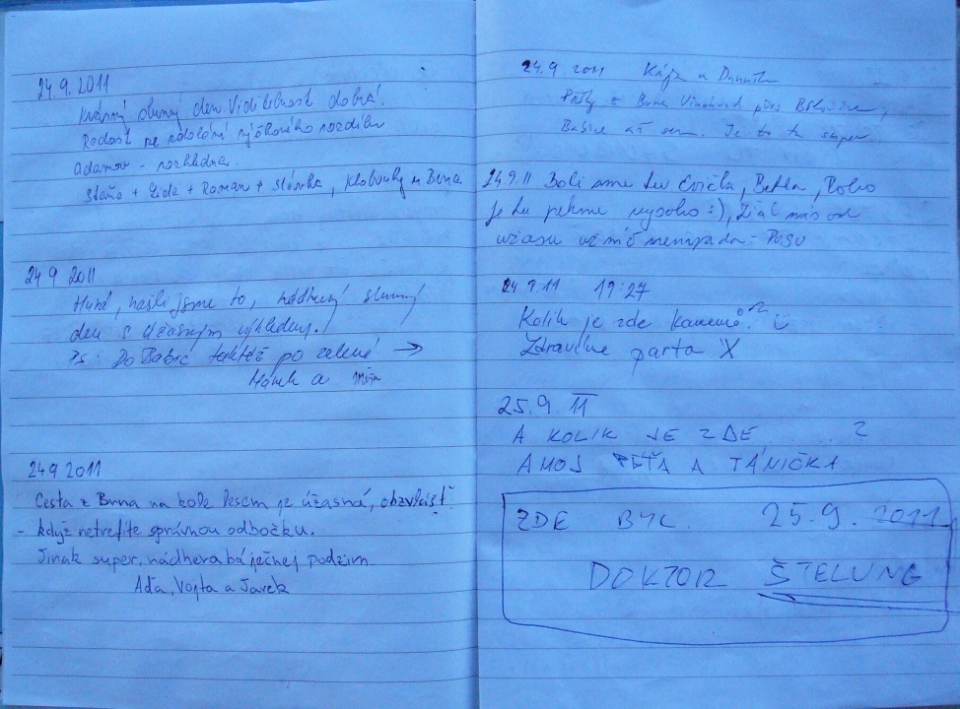 24.9.2011
Krásný slunný den Viditelnost dobrá!
Radost ze zdolání výškového rozdílu
Adamov - rozhledna.
Staňa + Zide + Roman + Slávka, Klobouky u Brna
24 9 2011
Hurá, našli jsme to, nádherný slunný
den s úžasným výhledem.
PS: Do Babic po zelené →
Marek a Míša
24 9 2011
Cesta z Brna na kole lesem je úžasná, obzvlášť
- když netrefíte správnou odbočku.
Jinak super, nádhera báječnej podzim
Aďa, Vojta a Jarek
24.9 2011 Kája a
Pěšky z Brna Vinohrad přes
Babice až sem. Je to tu super
24.9.11 Boli sme tu Evička, Betka, Robo
je tu pekne vysoko :), Žiaľ nás od
úžasu už nič nenapadá - PUSU
24 9 11 19:27
Kolik je zde kamenů?
Zdravíme parta X
25.9 11
A KOLIK JE ZDE ........?
AHOJ PEŤA A TÁNIČKA
ZDE BYL 25.9.2011
DOKTOR ŠTELUNG